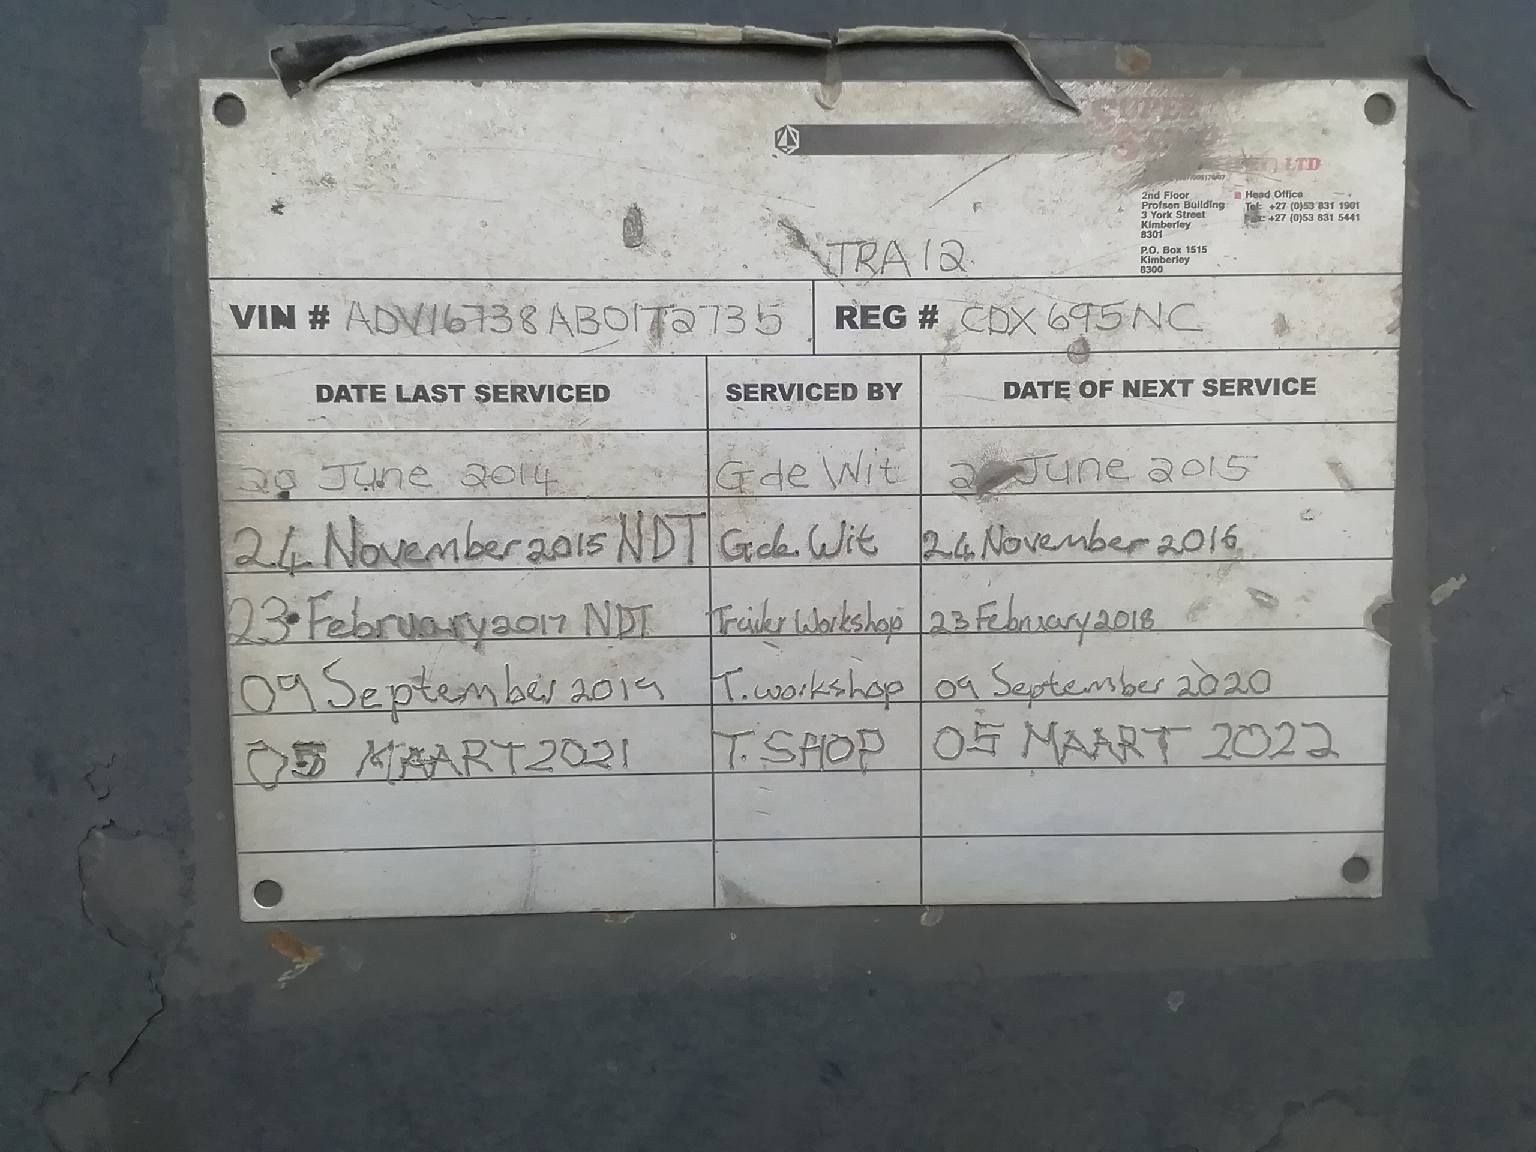 SUPER
LTD
2nd Floor
Profsen Building
3 York Street
Kimberley
8301
P.O. Box 1515
Kimberley
8300
Head Office
Tel: +27 (0)53 831 1901
Fax: +27 (0)53 831 5441
TRA 12
VIN # ADV16738AB01T2735 REG # CDX 695 NC
DATE LAST SERVICED SERVICED BY DATE OF NEXT SERVICE
20 June 2014 G de Wit June 2015
24 November 2015 NDT G.de.Wit 24 November 2016
23 February 2017 NDT Trailer Workshop 23 February 2018
09 September 2019 T.workshop 09 September 2020
05 MAART 2021 T. SHOP 05 MAART 2022